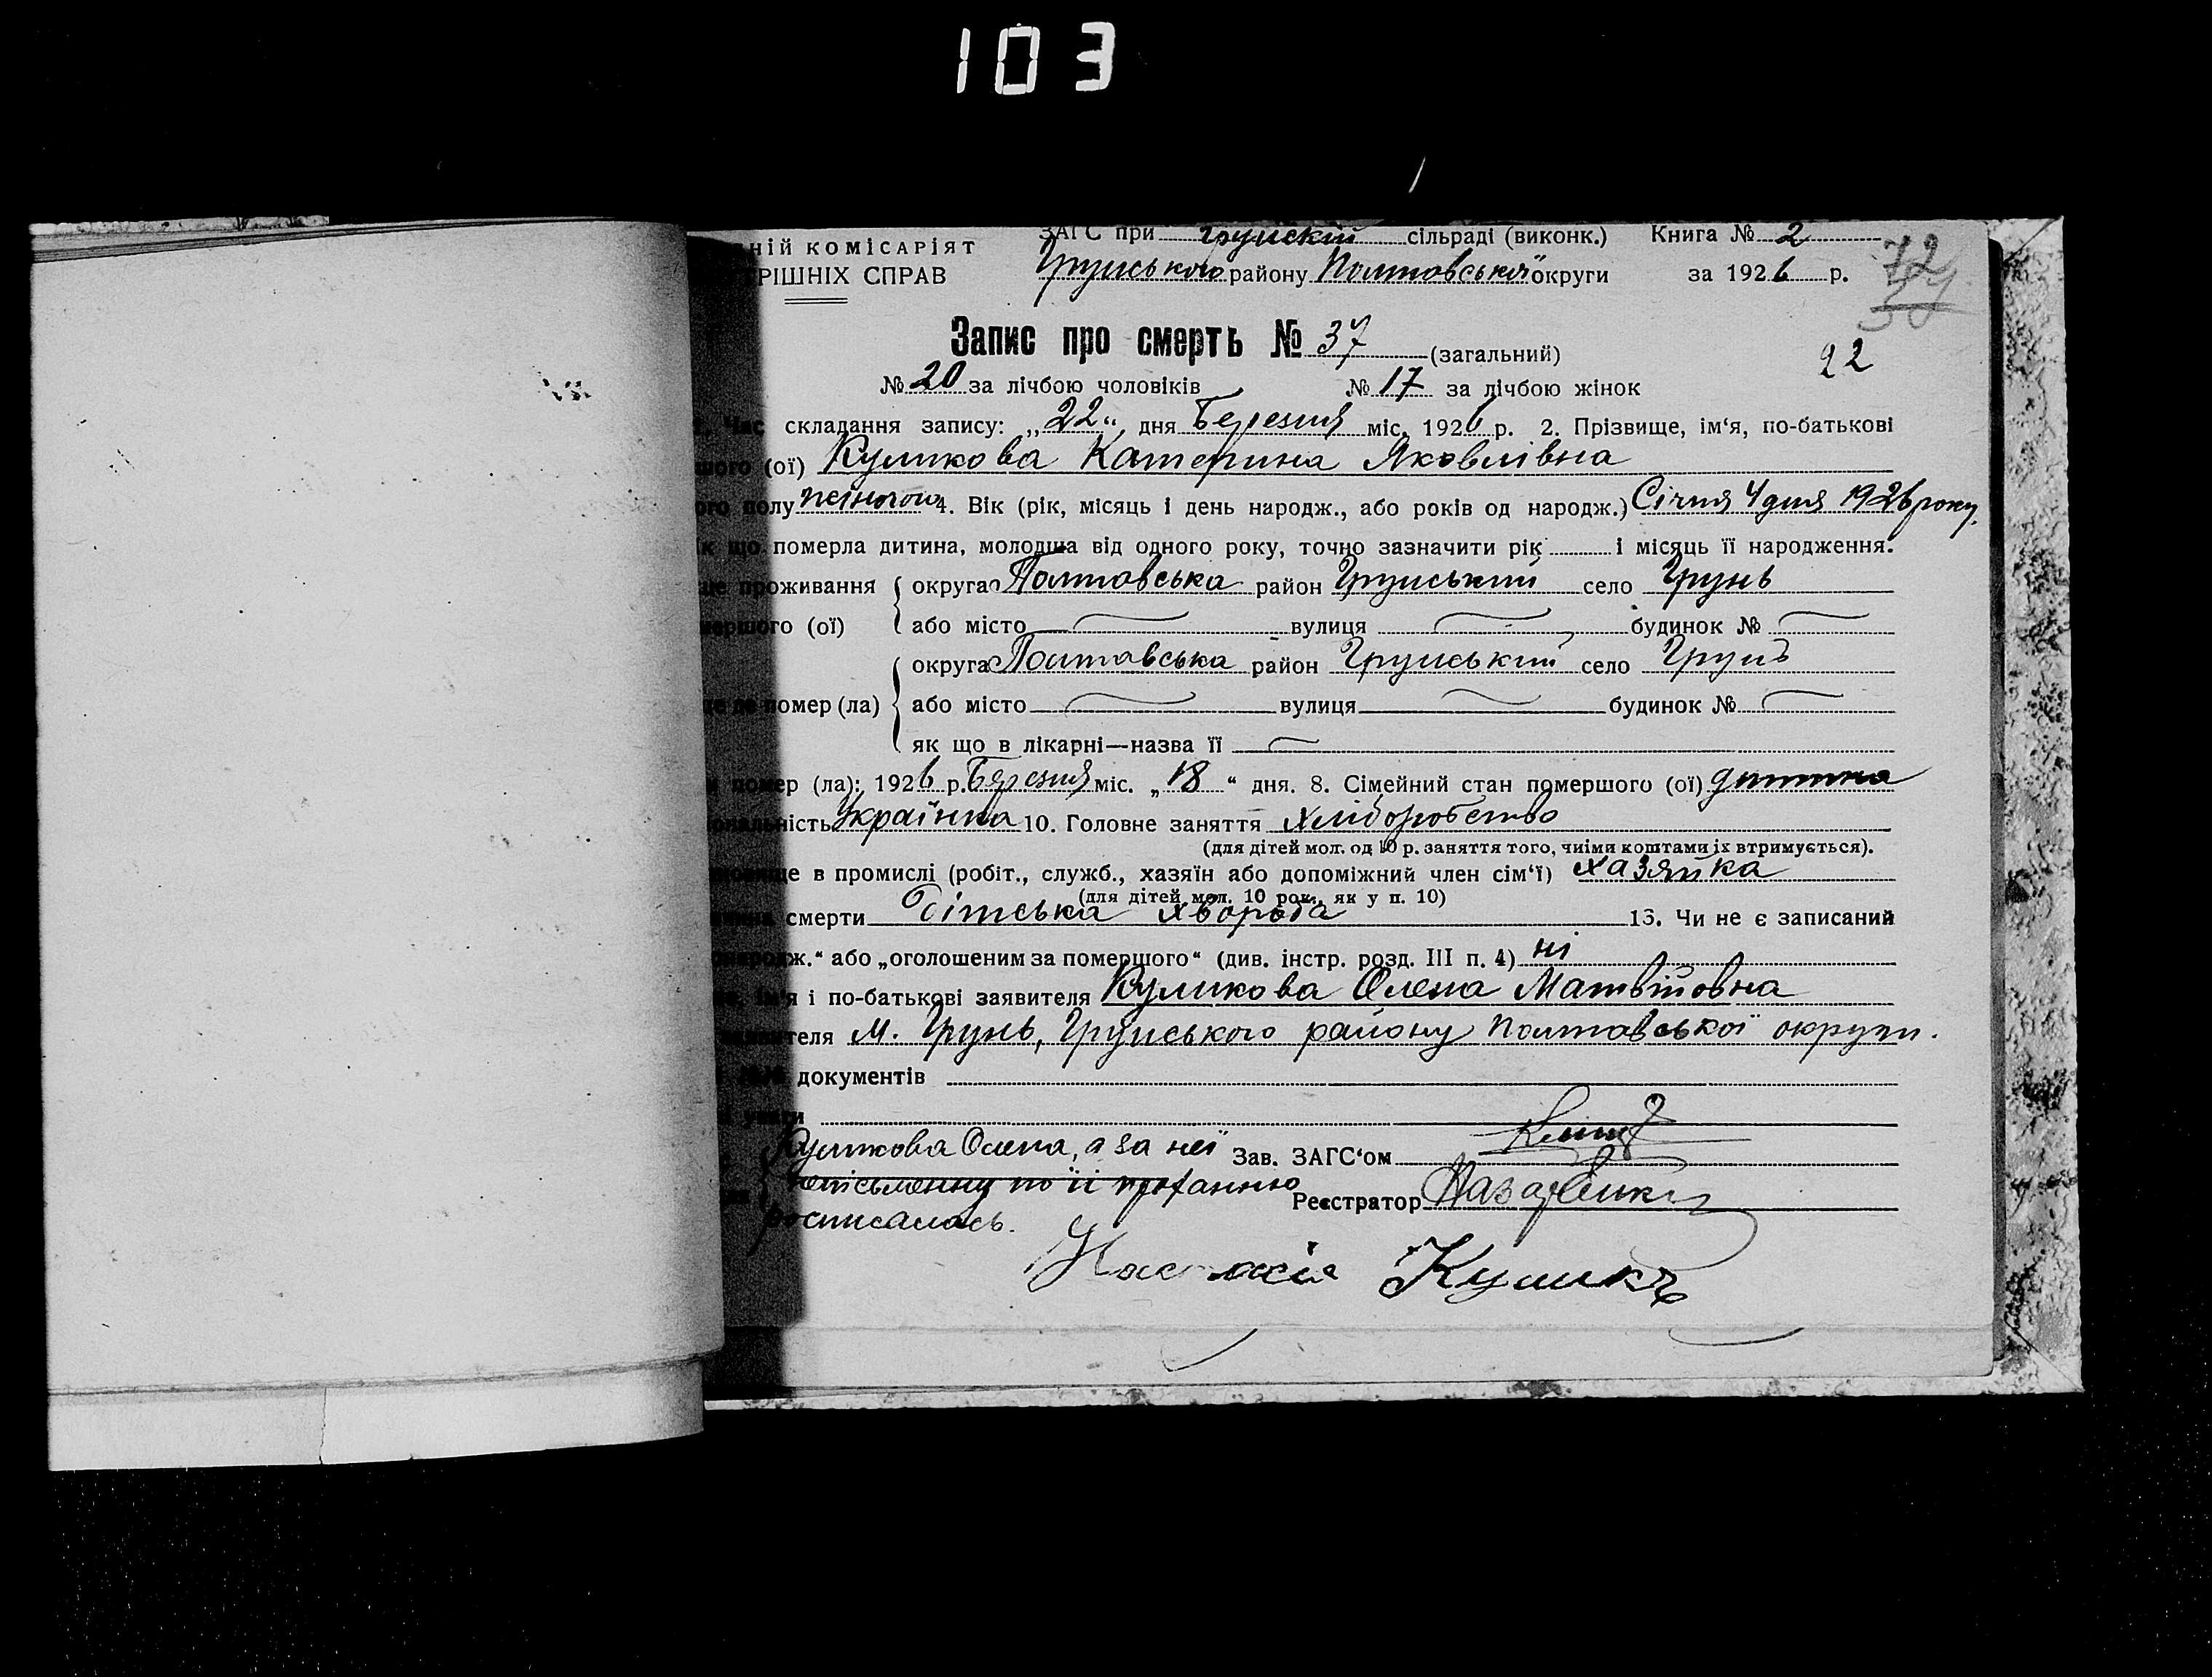 103
ній комісаріят
рішніх справ
ЗАГС при Грунскій сільраді (виконк.) Книга № 2
Грунського району Полтовської округи за 1926 р.
72
Запис про смерть № 37 (загальний)
22
№ 20 за лічбою чоловіків № 17 за лічбою жінок
1. Час складання запису: „22“ дня Березня міс. 1926 р. 2. Прізвище, ім‘я, по-батькові
шого (ої) Куликова Катерина Яковлівна
ого полу жіночого 4. Вік (рік, місяць і день народж., або років од народж.) Січня 4 дня 1926 року.
к що померла дитина, молодша від одного року, точно зазначити рік і місяць її народження.
це проживання округа Полтовська район Грунський село Грунь
мершого (ої) або місто вулиця будинок №
округа Полтавська район Грунський село Грунь
це де помер (ла) або місто вулиця будинок №
як що в лікарні—назва її
и помер (ла): 1926 р. Березня міс. „18“ дня. 8. Сімейний стан помершого (ої) дитина
ональність Українка 10. Головне заняття Хліборобство
(для дітей мол. од 10 р. заняття того, чиїми коштами їх втримується).
новище в промислі (робіт., служб., хазяїн або допоміжний член сім‘ї) хазяйка
(для дітей мол. 10 рок., як у п. 10)
смерти Дітська хвороба 13. Чи не є записаний
онародж.“ або „оголошеним за помершого“ (див. інстр. розд. III п. 4) ні
ім‘я і по-батькові заявителя Куликова Олена Матвійовна
теля м. Грунь, Грунського району Полтавської округи.
документів
уваги
Куликова Олена, а за неї Зав. ЗАГС‘ом
неписьменну по її проханню Реєстратор Назаренко
росписалась.
Настасія Кулик